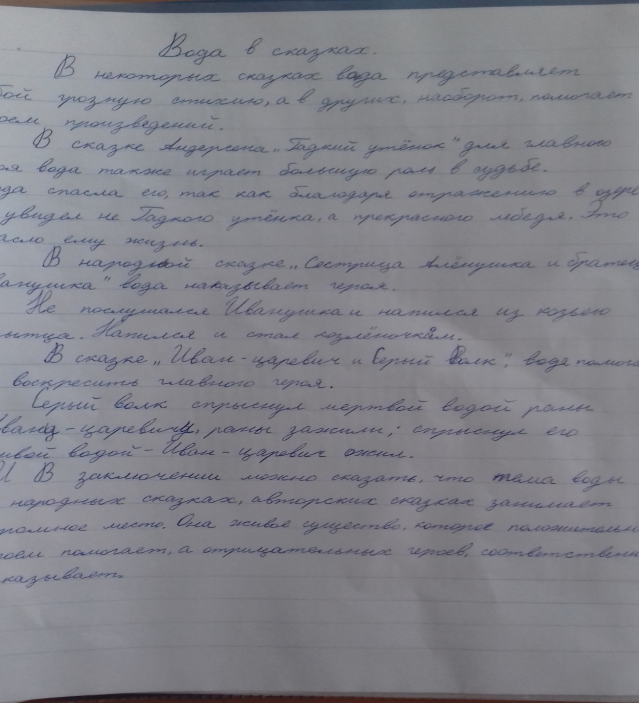 Вода в сказках.
В некоторых сказках вода представляет
бой грозную стихию, а в других, наоборот, помогает
роем произведений.
В сказке Андерсена „Гадкий утёнок" для главного
роя вода также играет большую роль в судьбе.
да спасла его, так как благодаря отражению в озере
увидел не Гадкого утёнка, а прекрасного лебедя. Это
асло ему жизнь.
В народной сказке „Сестрица Алёнушка и братец
ванушка" вода наказывает героя.
Не послушался Иванушка и напился из козьего
пытца. Напился и стал козлёночкам.
В сказке „Иван-царевич и Серый Волк", вода помога
воскресить главного героя.
Серый волк спрыснул мертвой водой раны
Ивану-царевичу, раны зажили; спрыснул его
ивой водой - Иван-царевич ожил.
И В заключении можно сказать, что тема воды
народных сказках, авторских сказках занимает
громное место. Она живое существо, которое положительн
роем помогает, а отрицательных героев, соответственн
казывает.